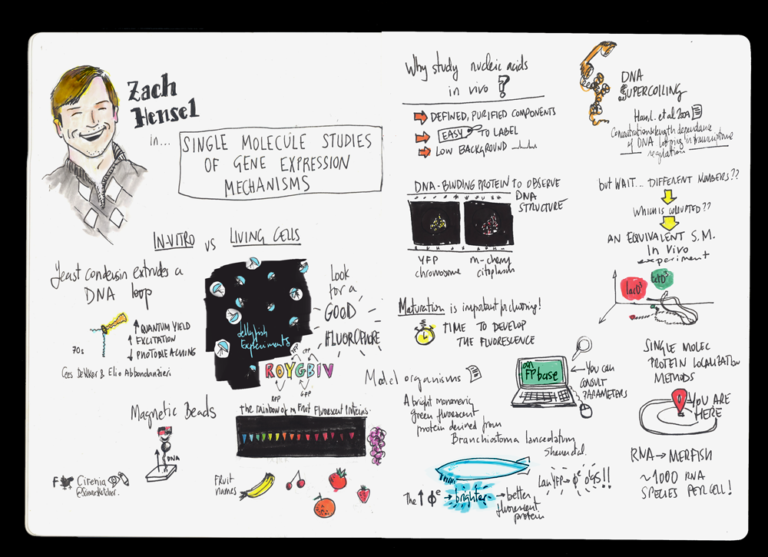 Zach
Hensel
in...
SINGLE MOLECULE STUDIES
OF GENE EXPRESSION
MECHANISMS
IN-VITRO vs LIVING CELLS
Yeast condensin extrudes a
DNA loop
↑ QUANTUM YIELD
↑ EXCITATION
↓ PHOTOBLEACHING
Cees Dekker & Elio Abbondanzieri
Jellyfish
Experiments
Look
for a
GOOD
FLUOROPHORE
ROYGBIV
Magnetic Beads
DNA
the rainbow of mFruit Fluorescent Proteins
Fruit
names
Why study nucleic acids
in vivo?
DEFINED, PURIFIED COMPONENTS
EASY TO LABEL
LOW BACKGROUND
DNA-BINDING PROTEIN TO OBSERVE
DNA
STRUCTURE
YFP
chromosome
m-cherry
citoplasm
Maturation is important for cloning!
TIME TO DEVELOP
THE FLUORESCENCE
Model organisms
FPbase
YOU CAN
CONSULT
PARAMETERS
A bright monomeric
green fluorescent
protein derived from
Branchiostoma lanceolatum
The ↑ → brighter → better
fluorescent
protein
DNA
SUPERCOILING
Han L. et al 2009
Concentration & length dependence
of DNA looping in transcriptional
regulation
but WAIT... DIFFERENT NUMBERS??
Which is corrupted??
AN EQUIVALENT S.M.
In vivo
experiment
SINGLE MOLEC
PROTEIN LOCALIZATION
METHODS
YOU ARE
HERE
RNA → MERFISH
~1000 RNA
SPECIES PER CELL!